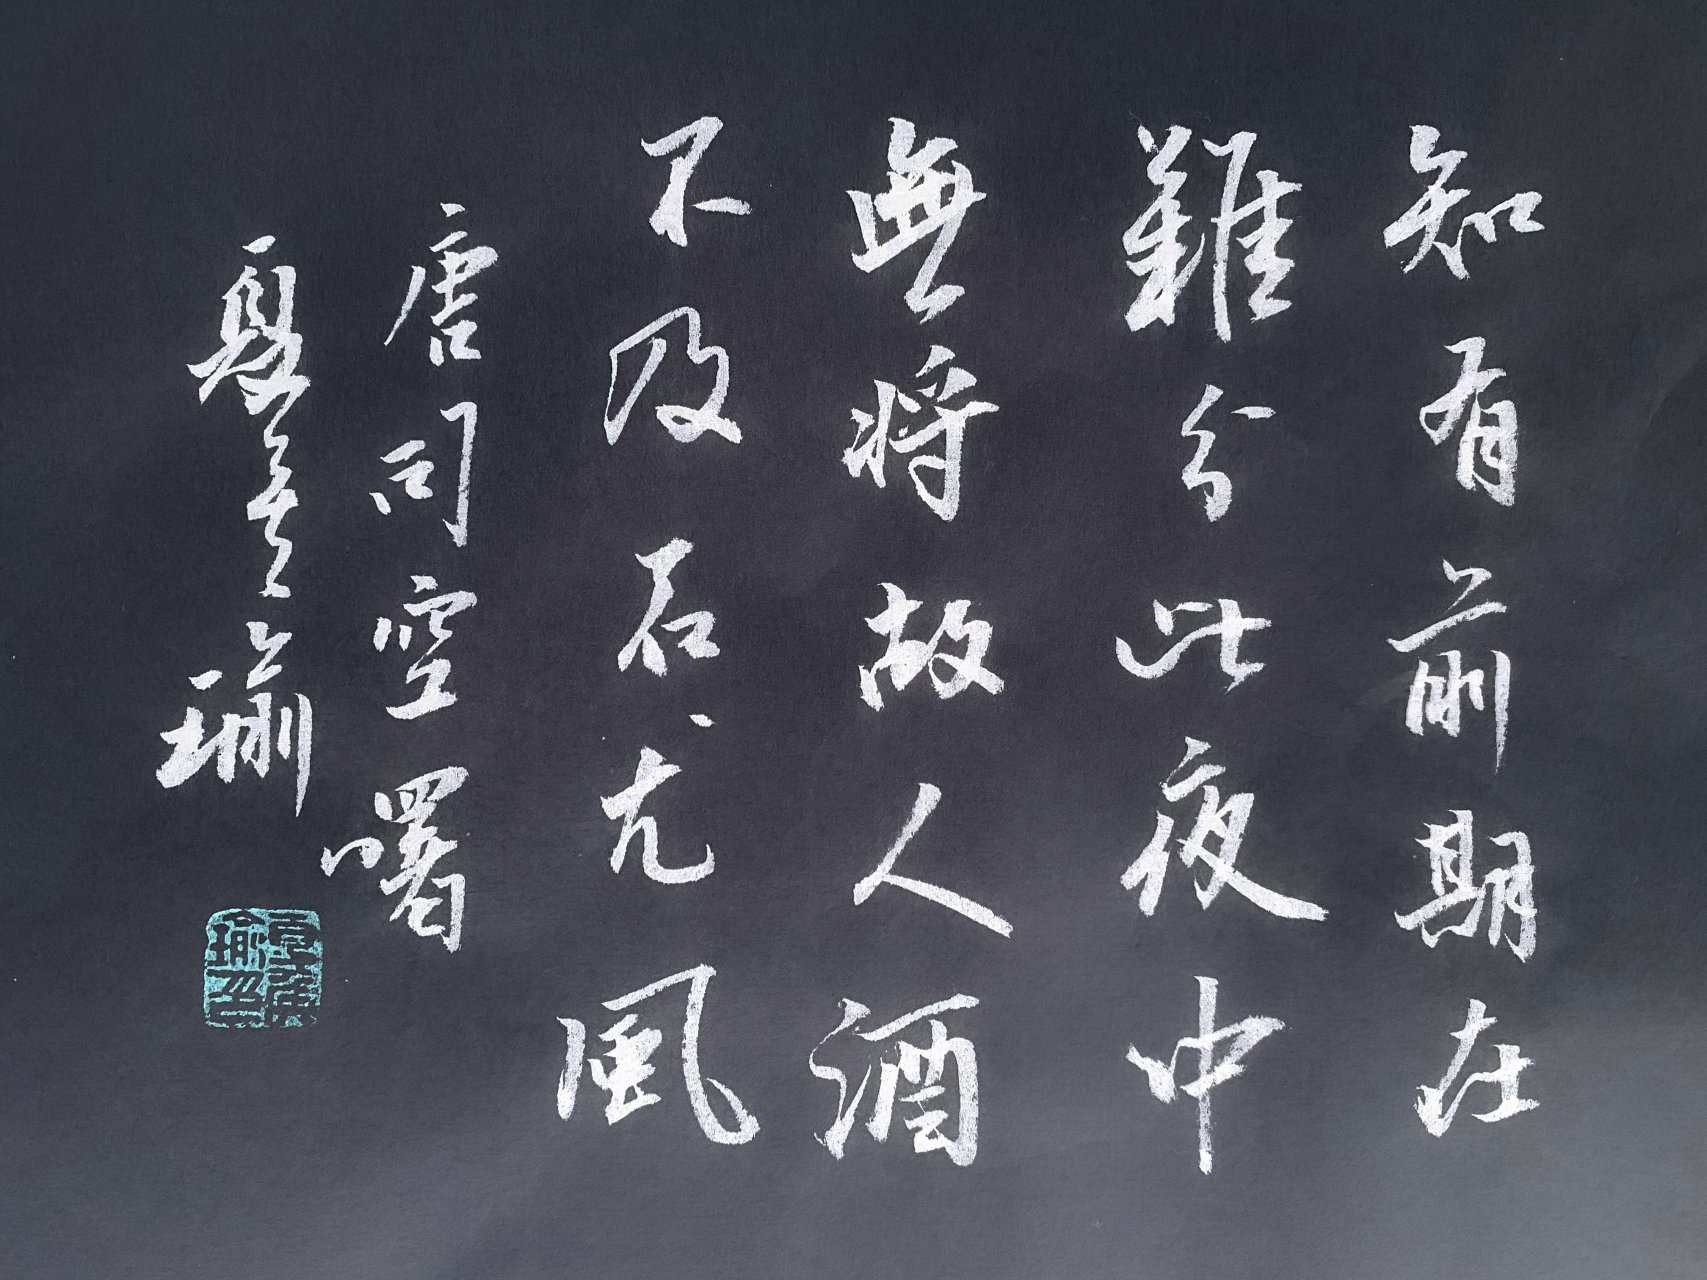 知有前期在
難分此夜中
無將故人酒
不及石尤風
唐司空曙